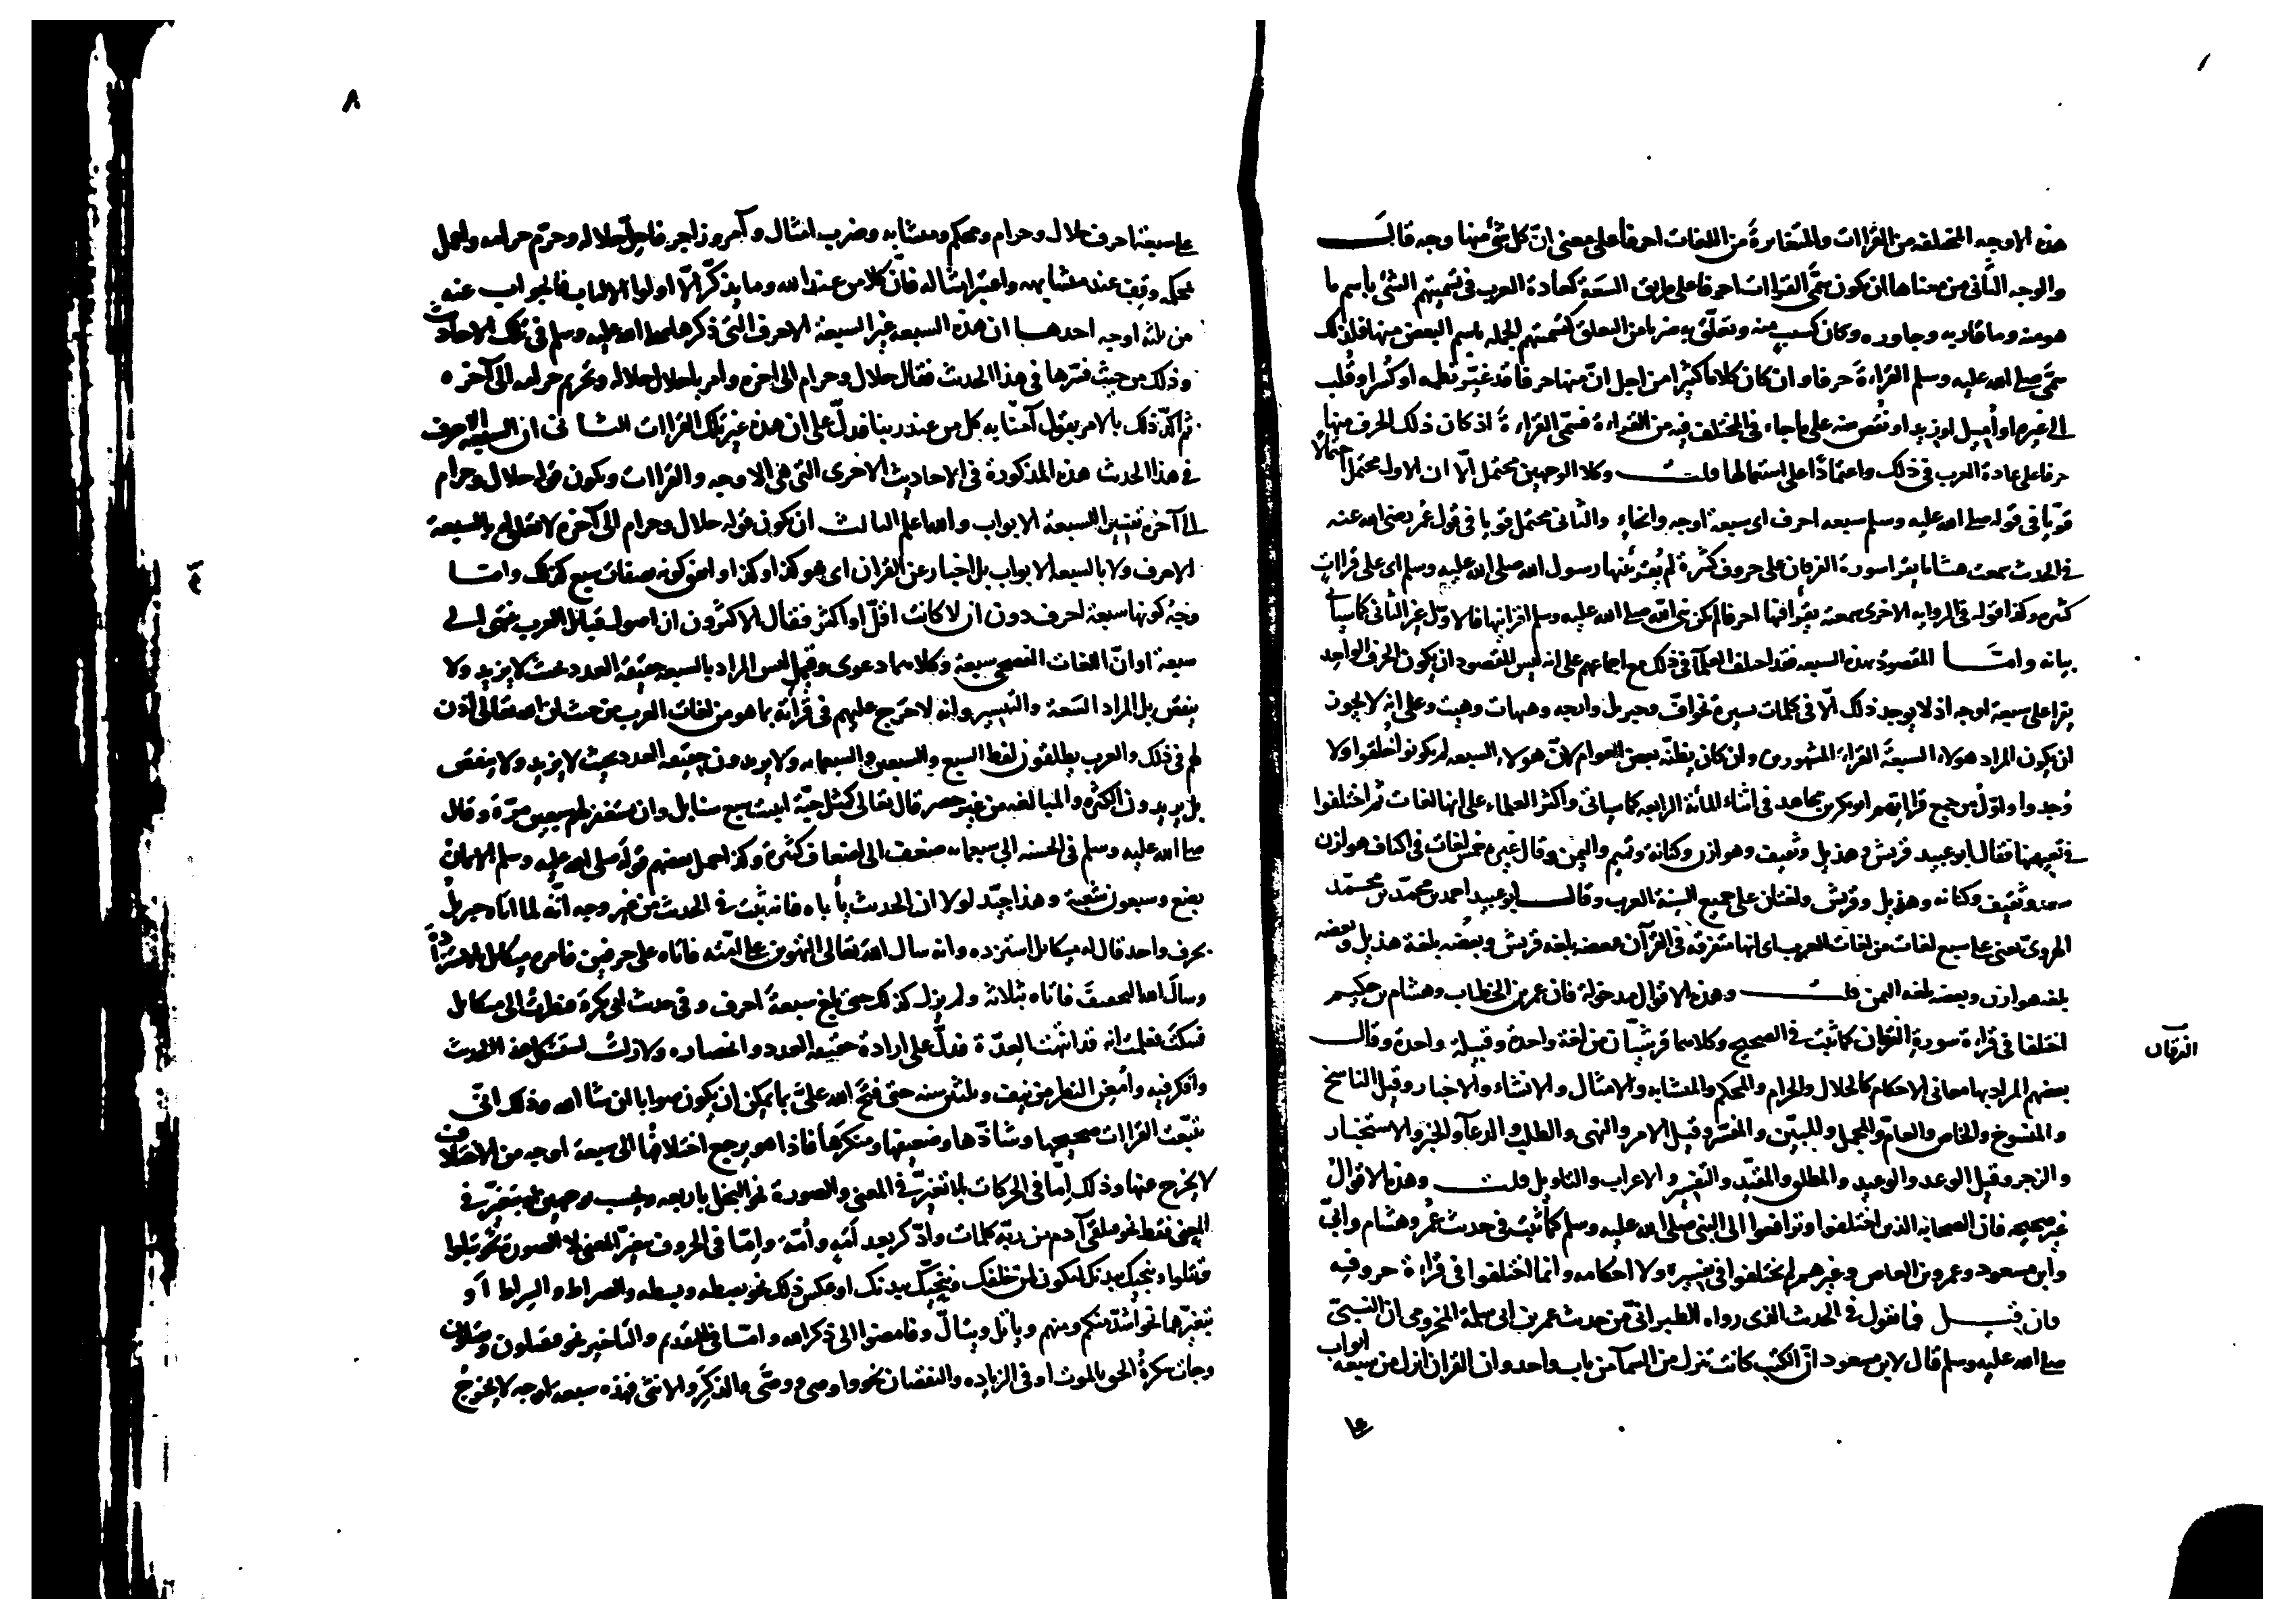 هذه الاوجه المختلفه من القراات والمتغايرة من اللغات احرفا على معنى ان كل شئ منها وجه قالــ
والوجه الثانى من معناها ان يكون سمى القراات احرفا على طريق السعة كعادة العرب فى تسميتهم الشئ باسم ما
هو منه وما قاربه وجاوره وكان كسبب منه وتعلق به ضربا من التعلق كتسميتهم الجمله باسم البعض منها فلذلك
سمى صلى الله عليه وسلم القراءة حرفا وان كان كلاما كثيرا من اجل ان منها حرفا قد غير نظمه او كسر او قلب
الى غيره او أميل او زيد او نقص منه على ما جاء فى المختلف فيه من القراءة فسمى القراءة اذ كان ذلك الحرف منها
حرفا على عادة العرب فى ذلك واعتمادا على استعمالها قلــت وكلا الوجهين محتمل الّا ان الاول محتمل احتمالا
قويا فى قوله صلى الله عليه وسلم سبعه احرف اى سبعة اوجه وانحاء والثانى محتمل قويا فى قول عمر رضى الله عنه
فى الحدث سمعت هشاما يقرا سورة الفرقان على حروف كثيرة لم يقرئنيها رسول الله صلى الله عليه وسلم اى على قراات
كثيره وكذا قوله فى الروايه الاخرى سمعته يقرا فيها احرفا لم يكن نبى الله صلى الله عليه وسلم اقرانيها فالاول غير الثانى كما سياتى
بيانه وامّــا المقصود بهذه السبعه فقد اختلف العلمآ فى ذلك مع اجماعهم على انه ليس المقصود ان يكون الحرف الواحد
يقرا على سبعة اوجه اذ لا يوجد ذلك الّا فى كلمات يسيرة نحو افّ وجبريل وارجه وهيهات وهيت وعلى انه لا يجوز
ان يكون المراد هولاء السبعة القراء المشهورين وان كان يظنه بعض العوام لانّ هولاء السبعه لم يكونوا خلقوا ولا
وجدوا واول من جمع قراتهم ابو بكر بن مجاهد فى اثناء المائة الرابعه كما سياتى واكثر العلماء على انها لغات ثم اختلفوا
فى تعيينها فقال ابو عبيد قريش وهذيل وثقيف وهوازن وكنانة وتميم واليمن وقال غيره خمس لغات فى اكناف هوازن
سعد وثقيف وكنانه وهذيل وقريش ولغتان على جميع السنة العرب وقالــ ابو عبيد احمد بن محمد بن محمّد
الهروىّ يعنى على سبع لغات من لغات العرب اى انها متفرقه فى القرآن فبعضه بلغه قريش وبعضه بلغة هذيل وبعضه
بلغه هوازن وبعضه بلغه اليمن قلــت وهذه الاقوال مدخولة فان عمر بن الخطاب وهشام بن حكيم
اختلفا فى قراءة سورة الفرقان كما ثبت فى الصحيح وكلاهما قرشيّان من لغة واحدة وقبيلة واحدة وقالــ
الفرقان
بعضهم المراد بها معانى الاحكام كالحلال والحرام والمحكم والمتشابه والامثال والانشاء والاخبار وقيل الناسخ
والمنسوخ والخاص والعام والمجمل والمبين والمفسر وقيل الامر والنهى والطلب والدعآ والخبر والاستخبار
والزجر وقيل الوعد والوعيد والمطلق والمقيّد والتفسير والاعراب والتاويل قلــت وهذه الاقوال
غير صحيحه فان الصحابه الذين اختلفوا وترافعوا الى النبى صلى الله عليه وسلم كما ثبت فى حدث عمر وهشام وابىّ
وابن مسعود وعمرو بن العاص وغيرهم لم يختلفوا فى تفسيره ولا احكامه وانما اختلفوا فى قراءة حروفه
فان قيــل فما تقول فى الحدث الذى رواه الطبرانىّ من حدث عمر بن ابى سلمة المخزومى ان النبىّ
صلى الله عليه وسلم قال لابن مسعود ان الكتب كانت تنزل من السمآ من باب واحد وان القران انزل من سبعة ابواب
على
٨
على سبعة احرف حلال وحرام ومحكم ومتشابه وضرب امثال وآمر وزاجر فاحل حلاله وحرّم حرامه واعمل
بمحكمه وقف عند متشابهه واعتبر امثاله فان كلا من عند الله وما يذكّر الّا اولوا الالباب فالجواب عنه
من ثلثة اوجه احدهــا ان هذه السبعه غير السبعة الاحرف التى ذكرها صلى الله عليه وسلم فى تلك الاحاديث
وذلك من حيث فسّرها فى هذا الحدث فقال حلال وحرام الى اخره وامر باحلال حلاله وتحريم حرامه الى آخره
ثم اكّد ذلك بالامر بقول آمنا به كل من عند ربنا فدلّ على ان هذه غير تلك القراات الثــانى ان السبعة الاحرف
فى هذا الحدث هذه المذكورة فى الاحاديث الاخرى التى هى الاوجه والقراات ويكون قوله حلال وحرام
الى آخره تفسيرا للسبعة الابواب والله اعلم الثالث ان يكون قوله حلال وحرام الى آخره لا تعلق له بالسبعة
الاحرف ولا بالسبعه الابواب بل اخبار عن القران اى هو كذا وكذا واتفق كونه بصفات سبع كذلك وامّــا
وجه كونها سبعة احرف دون ان لا كانت اقلّ او اكثر فقال الاكثرون ان اصول قبايل العرب تنتهى الى
سبعة او انّ اللغات الفصحى سبعة وكلاهما دعوى وقيل ليس المراد بالسبعه حقيقة العدد بحيث لا يزيد ولا
ينقص بل المراد السّعة والتيسير وانه لا حرج عليهم فى قراته بما هو من لغات العرب من حيث ان الله تعالى اذن
لهم فى ذلك والعرب يطلقون لفظ السبع والسبعين والسبعمايه ولا يريدون حقيقه العدد بحيث لا يزيد ولا ينقص
بل يريدون الكثره والمبالغه من غير حصر قال تعالى كمثل حبّة انبتت سبع سنابل وان تستغفر لهم سبعين مرّة وقال
صلى الله عليه وسلم فى الحسنه الى سبعمايه ضعف الى اضعاف كثيرة وكذا حمل بعضهم قوله صلى الله عليه وسلم الايمان
بضع وسبعون شعبة وهذا جيّد لولا ان الحدث يأباه فانه ثبت فى الحدث من غير وجه انّه لما اتاه جبريل
بحرف واحد قال له ميكايل استزده وانه سال الله تعالى التهوين على امته فاتاه على حرفين فامره ميكايل بالاستزادة
وسال الله التخفيف فاتاه بثلاثة ولم يزل كذلك حتى بلغ سبعة احرف وفى حدث ابى بكرة فنظرت الى ميكايل
فسكت فعلمت انه قد انتهت العدّة فدلّ على ارادة حقيقه العدد وانحصاره ولا زلت استشكل هذا الحدث
وافكر فيه وأمعن النظر من نيف وثلثين سنه حتى فتح الله علىّ بما يمكن ان يكون صوابا ان شا الله وذلك انّى
تتبّعت القراات صحيحها وشاذّها وضعيفها ومنكرها فاذا هو يرجع اختلافها الى سبعة اوجه من الاختلاف
لا يخرج عنها وذلك امّا فى الحركات بلا تغيّر فى المعنى والصورة نحو البخل باربعه ويحسب بوجهين او بتغيّر فى
المعنى فقط نحو فتلقى آدم من ربّه كلمات وادّكر بعد أمّة وأمه وامّا فى الحروف بتغيّر المعنى لا الصورة نحو تبلوا
وتتلوا وننجيك ببدنك لتكون لمن خلفك وننجيك ببدنك او عكس ذلك نحو بصطه وبسطه والصراط والسراط او
بتغيّرهما نحو اشدّ منكم ومنهم وياتل ويتالّ وفامضوا الى ذكر الله وامّــا فى التقديم والتاخير نحو فيقتلون ويقتلون
وجات سكرة الحق بالموت او فى الزياده والنقصان نحو واوصى ووصّى والذكر والانثى فهذه سبعه اوجه لا يخرج